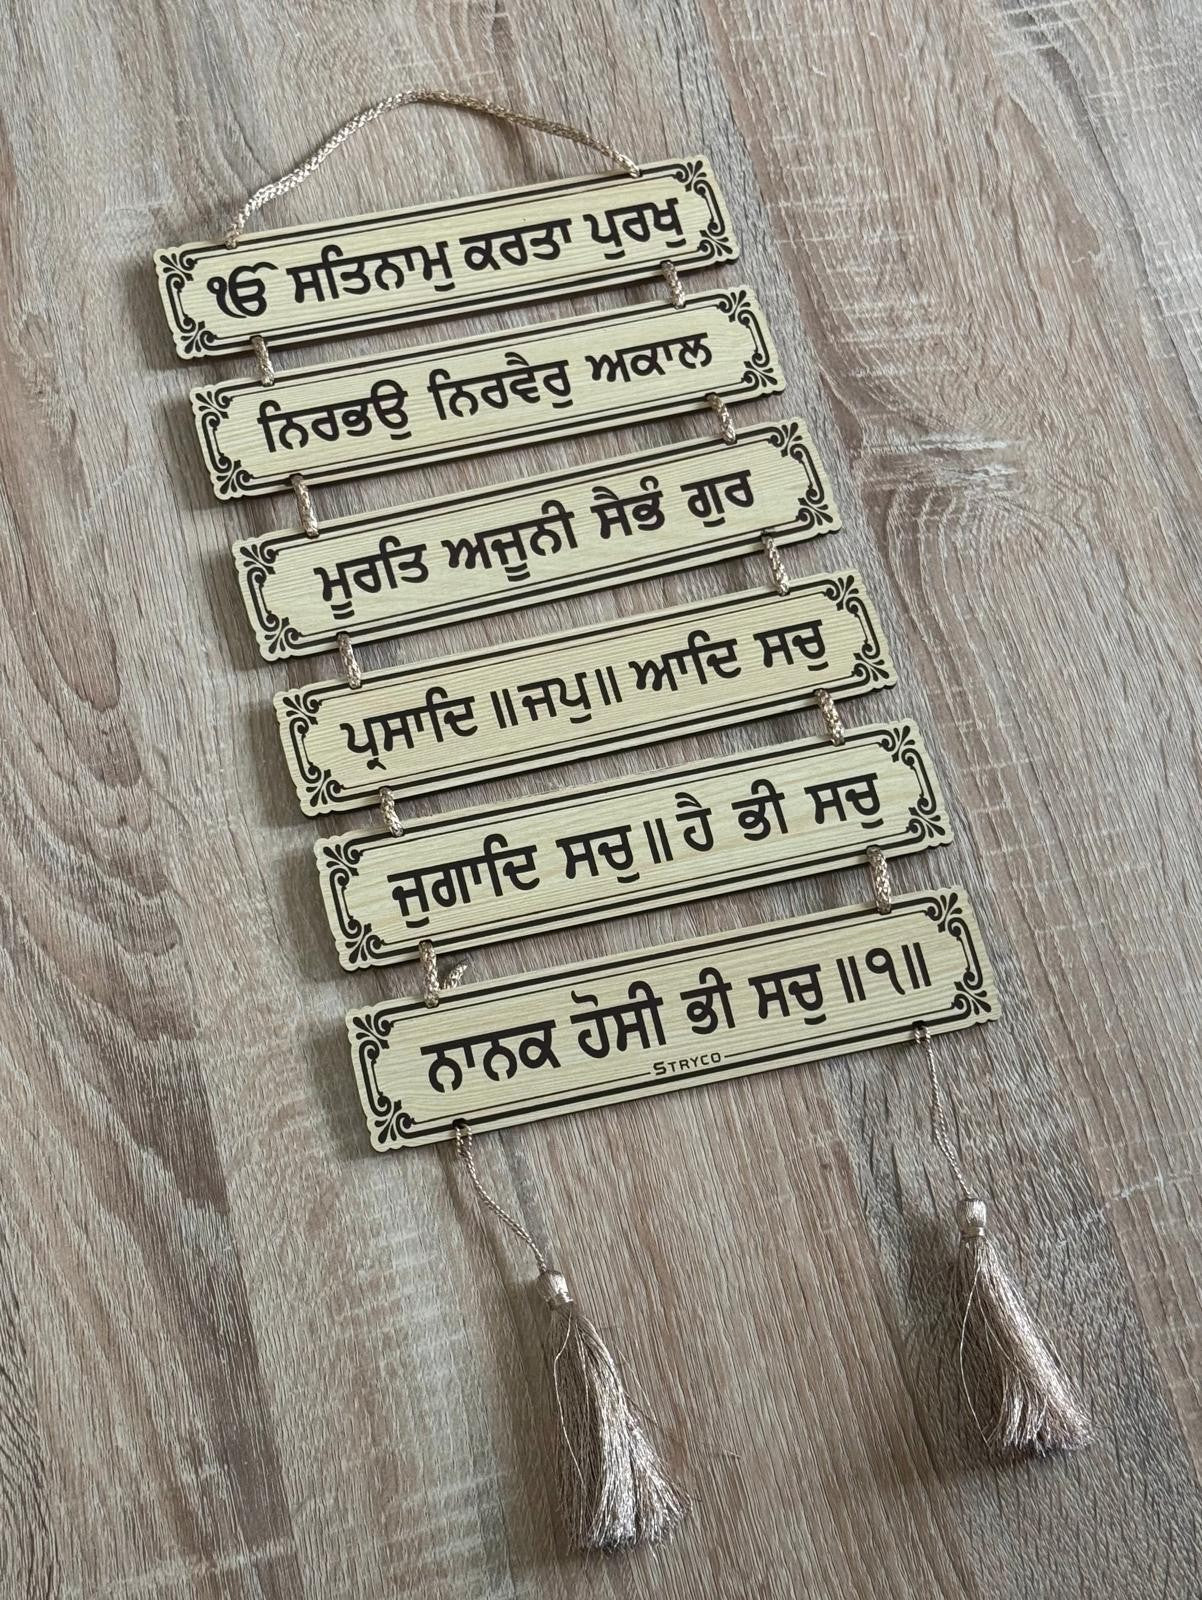 ੴ ਸਤਿਨਾਮੁ ਕਰਤਾ ਪੁਰਖੁ
ਨਿਰਭਉ ਨਿਰਵੈਰੁ ਅਕਾਲ
ਮੂਰਤਿ ਅਜੂਨੀ ਸੈਭੰ ਗੁਰ
ਪ੍ਰਸਾਦਿ ॥ ਜਪੁ ॥ ਆਦਿ ਸਚੁ
ਜੁਗਾਦਿ ਸਚੁ ॥ ਹੈ ਭੀ ਸਚੁ
ਨਾਨਕ ਹੋਸੀ ਭੀ ਸਚੁ ॥੧॥
STRYCO